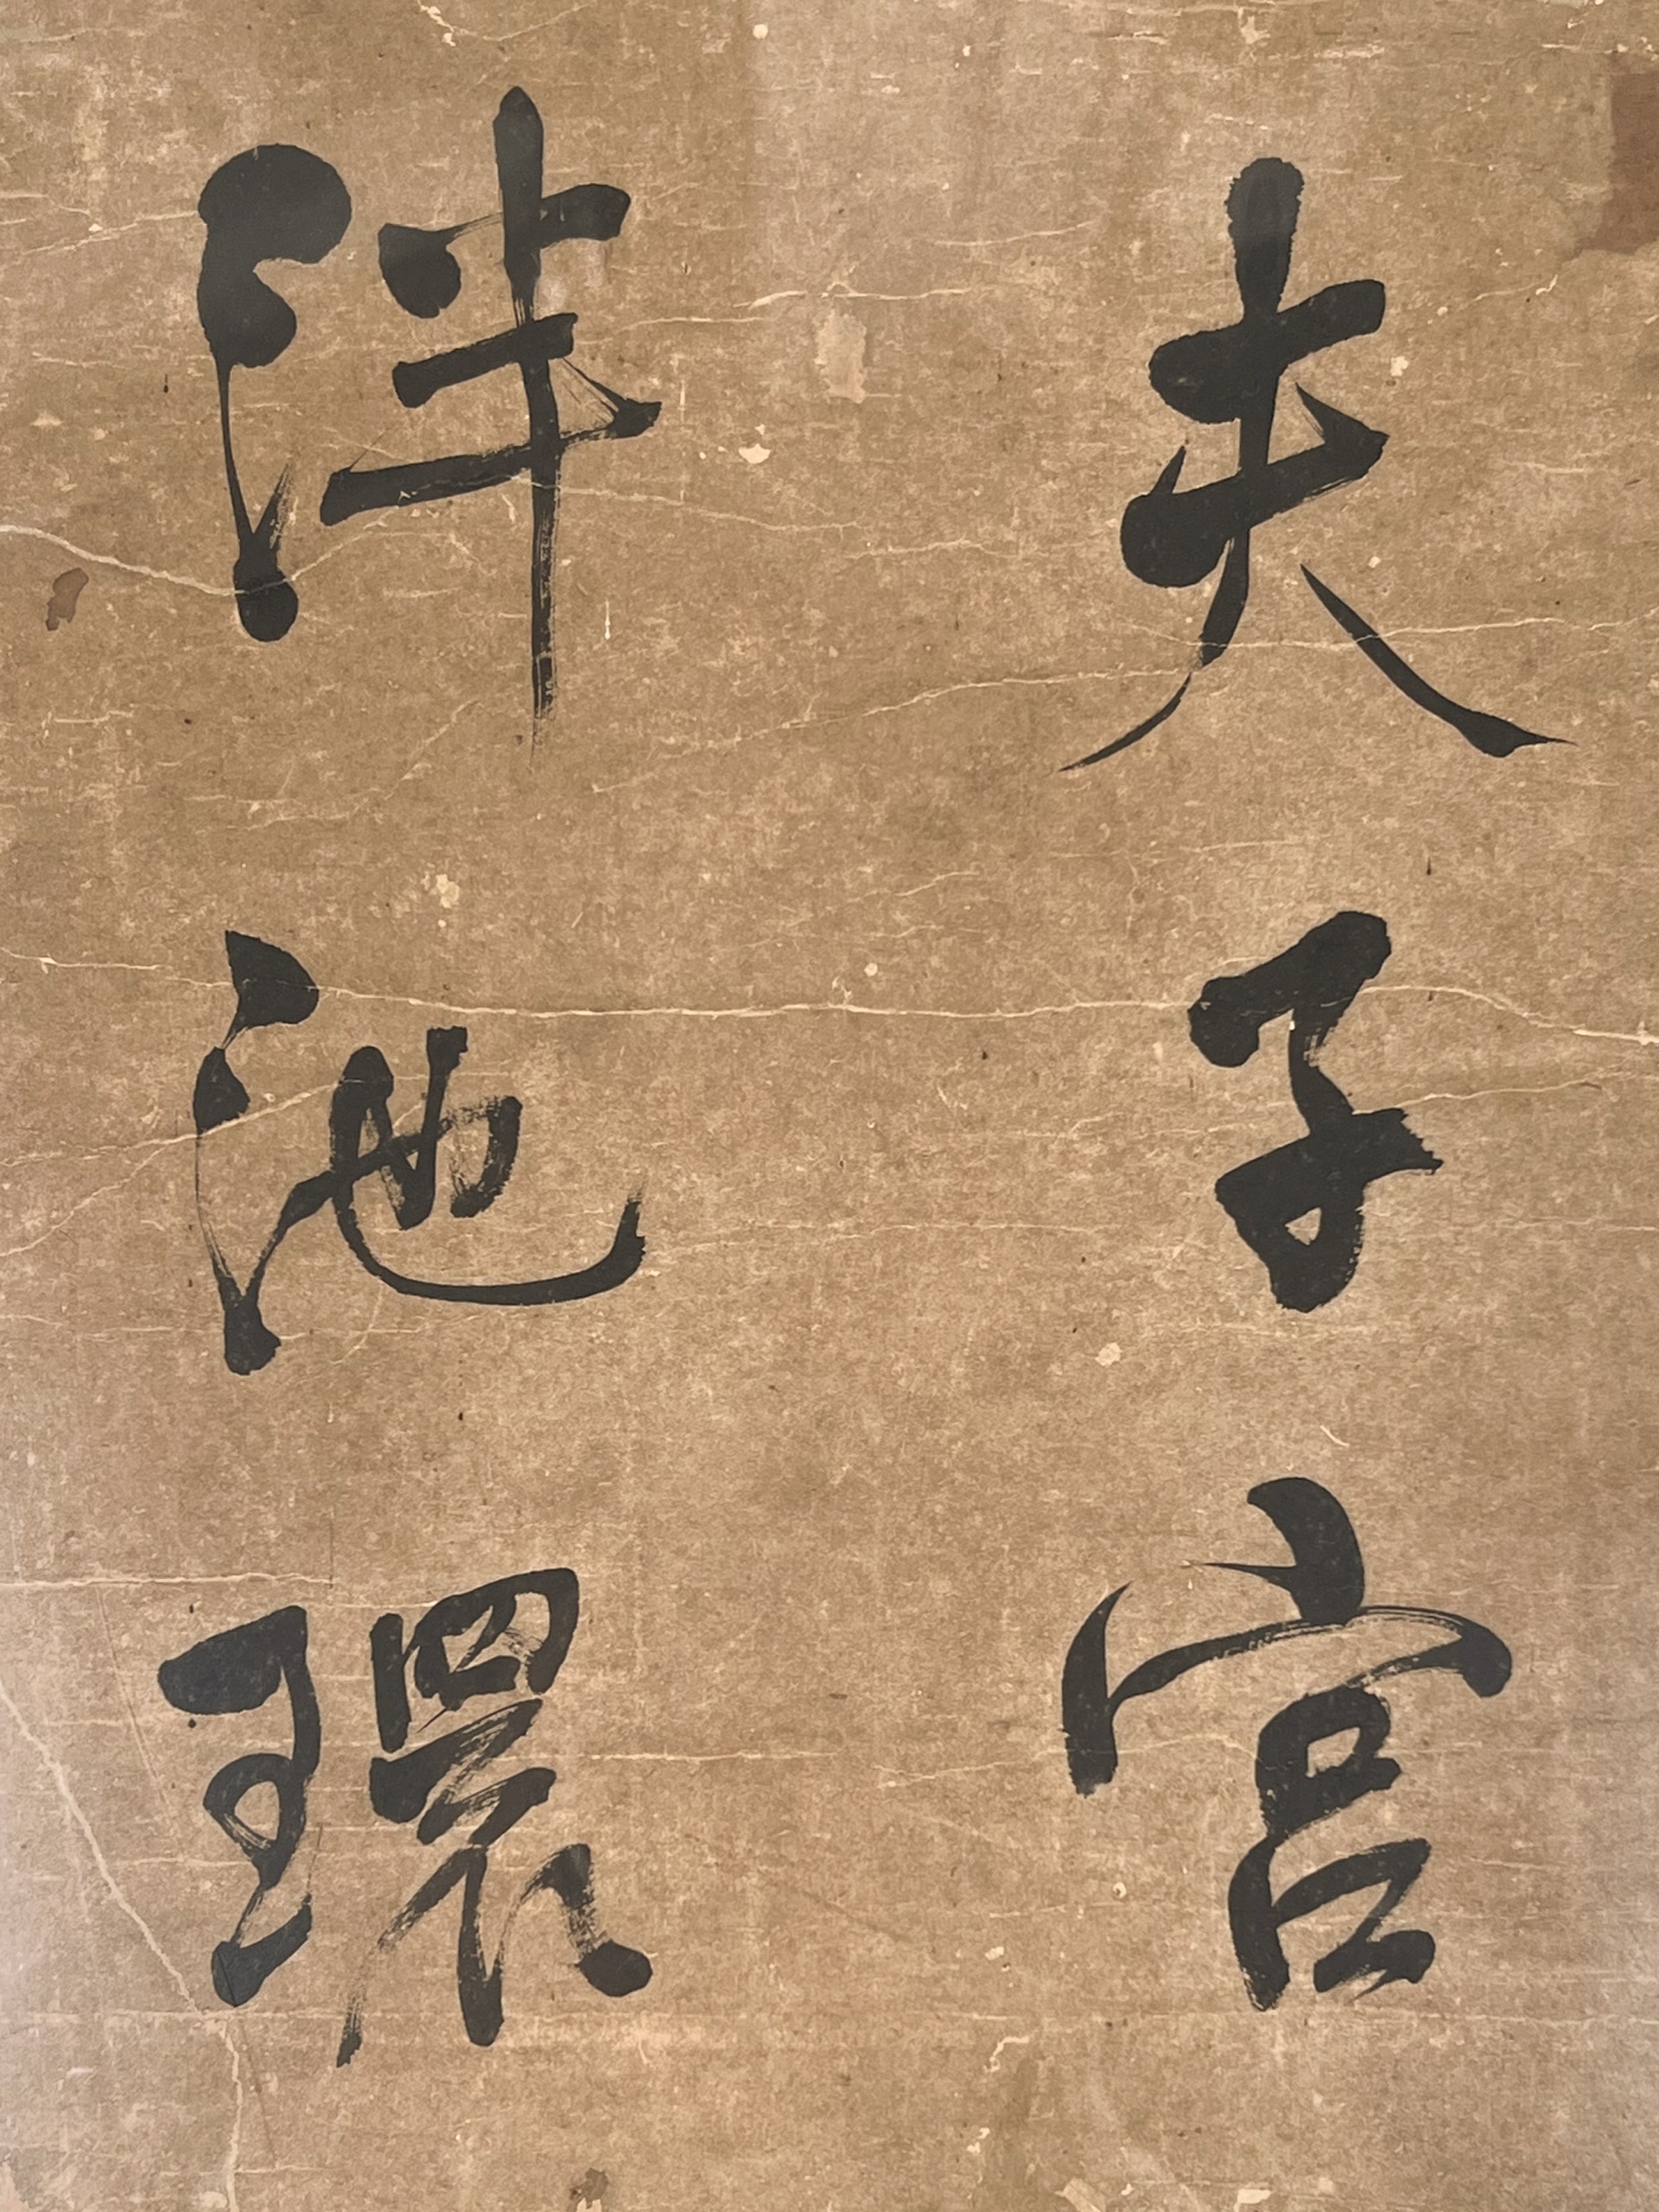 夫子宮
泮池環